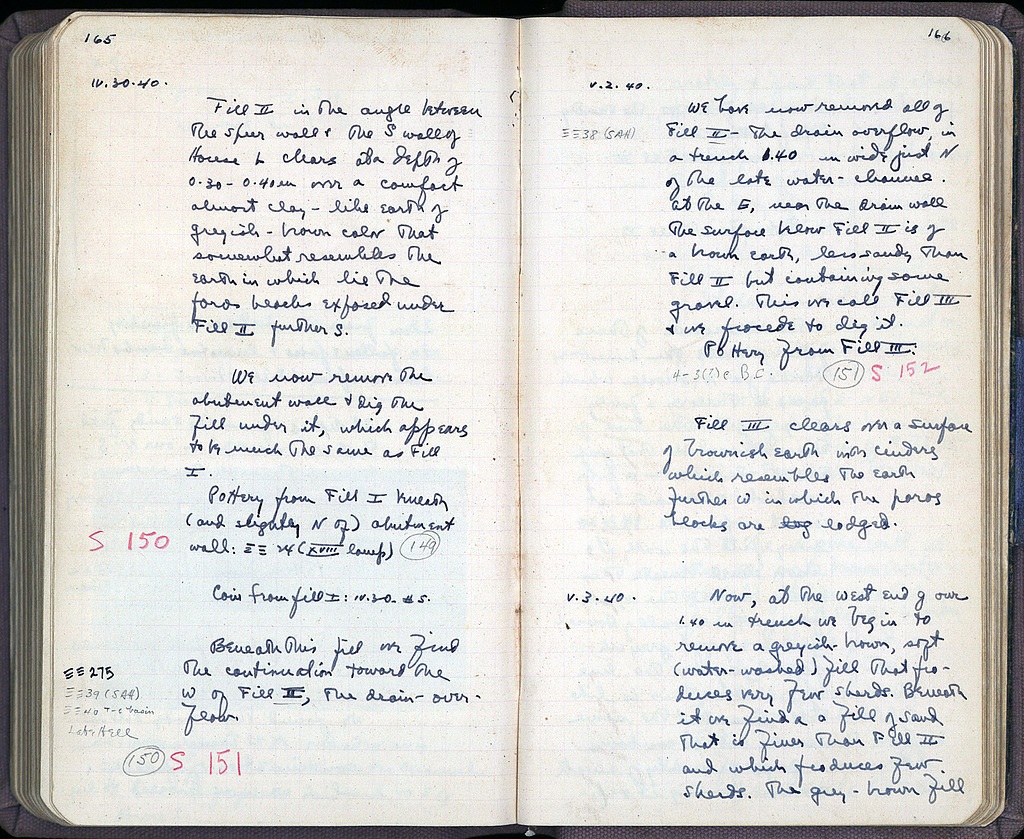 165
IV.30.40.
Fill II in the angle between
the spur wall & the S wall of
House L clears at a depth of
0.30-0.40 m over a compact
almost clay-like earth of
greyish-brown color that
somewhat resembles the
earth in which lie the
poros blocks exposed under
Fill II further S.
We now remove the
abutment wall & dig the
fill under it, which appears
to be much the same as Fill
I
Pottery from Fill I beneath
(and slightly N of) abutment
S 150 wall: ΞΞ 24 (XVIII lamp) (149)
Coin from fill I: IV.30. #5.
Beneath this fill we find
ΞΞ275 the continuation toward the
ΞΞ39 (SAH) W of Fill II, the drain-over-
ΞΞ40 T-C basin flow.
Late Hell
(150) S 151
166
V.2.40.
We have now removed all of
ΞΞ38 (SAH) Fill II - the drain overflow, in
a trench 1.40 m wide just N
of the late water-channel.
At the E, near the drain wall
the surface below Fill II is of
a brown earth, less sandy than
Fill II but containing some
gravel. This we call Fill III
& we procede to dig it.
Pottery from Fill III.
4-3(?) c B.C. (151) S 152
Fill III clears over a surface
of brownish earth with cinders
which resembles the earth
further W in which the poros
blocks are log lodged.
V.3.40. Now, at the west end of our
1.40 m trench we begin to
remove a greyish-brown, soft
(water-washed) fill that pro-
duces very few sherds. Beneath
it we find a a fill of sand
that is finer than Fill II
and which produces few
sherds. The grey-brown fill